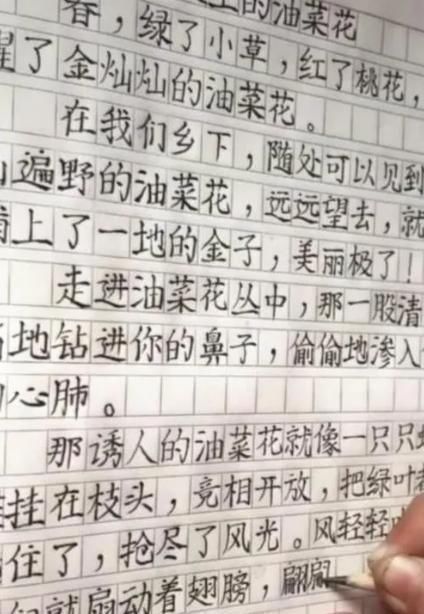 的油菜花
春，绿了小草，红了桃花，
了金灿灿的油菜花。
在我们乡下，随处可以见到
遍野的油菜花，远远望去，就
上了一地的金子，美丽极了！
走进油菜花丛中，那一股清
地钻进你的鼻子，偷偷地渗入
心肺。
那诱人的油菜花就像一只只
挂在枝头，竞相开放，把绿叶都
住了，抢尽了风光。风轻轻
就扇动着翅膀，翩翩